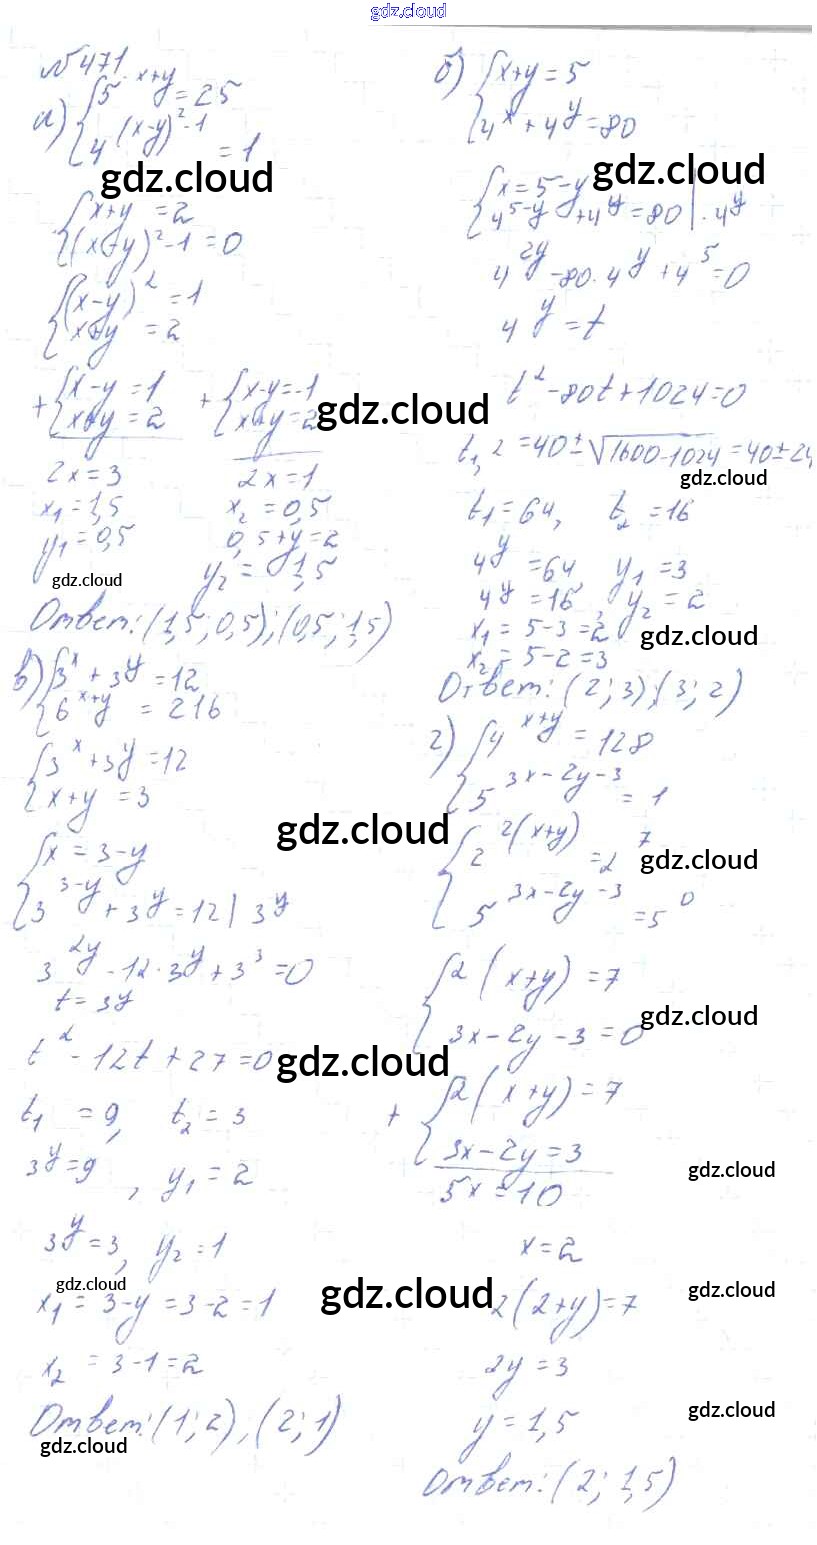 gdz.cloud
№471
а) {5^(x+y) = 25
{4^((x-y)^2-1) = 1
gdz.cloud
{x+y = 2
{(x-y)^2-1 = 0
{(x-y)^2 = 1
{x+y = 2
+ {x-y = 1 + {x-y = -1
{x+y = 2 {x+y = 2
gdz.cloud
2x = 3 2x = 1
x₁ = 1,5 x₂ = 0,5
y₁ = 0,5 0,5+y = 2
y₂ = 1,5
gdz.cloud
Ответ: (1,5; 0,5); (0,5; 1,5)
в) {3^x + 3^y = 12
{6^(x+y) = 216
{3^x + 3^y = 12
{x+y = 3
gdz.cloud
{x = 3-y
{3^(3-y) + 3^y = 12 | 3^y
3^(2y) - 12·3^y + 3^3 = 0
t = 3^y
t^2 - 12t + 27 = 0
gdz.cloud
t₁ = 9, t₂ = 3
3^y = 9, y₁ = 2
3^y = 3, y₂ = 1
gdz.cloud
x₁ = 3-y = 3-2 = 1
x₂ = 3-1 = 2
Ответ: (1; 2), (2; 1)
gdz.cloud
б) {x+y = 5
{4^x + 4^y = 80
gdz.cloud
{x = 5-y
{4^(5-y) + 4^y = 80 | ·4^y
4^(2y) - 80·4^y + 4^5 = 0
4^y = t
t^2 - 80t + 1024 = 0
t₁,₂ = 40 ± √(1600-1024) = 40 ± 24
gdz.cloud
t₁ = 64, t₂ = 16
4^y = 64, y₁ = 3
4^y = 16, y₂ = 2
x₁ = 5-3 = 2
gdz.cloud
x₂ = 5-2 = 3
Ответ: (2; 3), (3; 2)
г) {4^(x+y) = 128
{5^(3x-2y-3) = 1
{2^(2(x+y)) = 2^7
gdz.cloud
{5^(3x-2y-3) = 5^0
{2(x+y) = 7
gdz.cloud
{3x-2y-3 = 0
+ {2(x+y) = 7
{3x-2y = 3
gdz.cloud
5x = 10
x = 2
gdz.cloud
gdz.cloud
2(2+y) = 7
2y = 3
gdz.cloud
y = 1,5
Ответ: (2; 1,5)